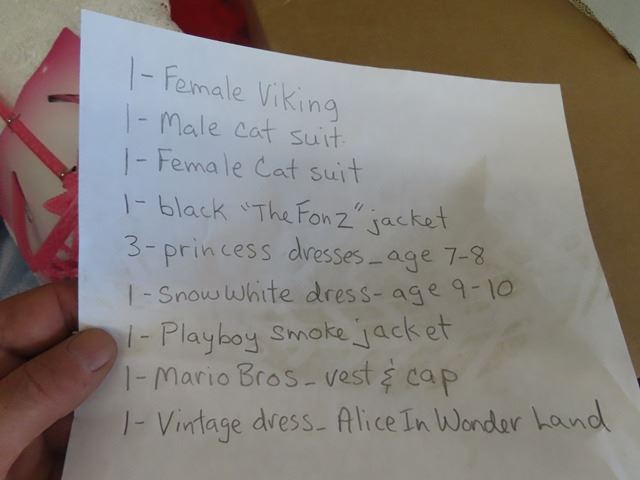 1- Female Viking
1- Male cat suit.
1- Female Cat suit
1- black "The Fonz" jacket
3- princess dresses_ age 7-8
1- Snow White dress- age 9-10
1- Playboy smoke jacket
1- Mario Bros_ vest & cap
1- Vintage dress_ Alice In Wonder Land